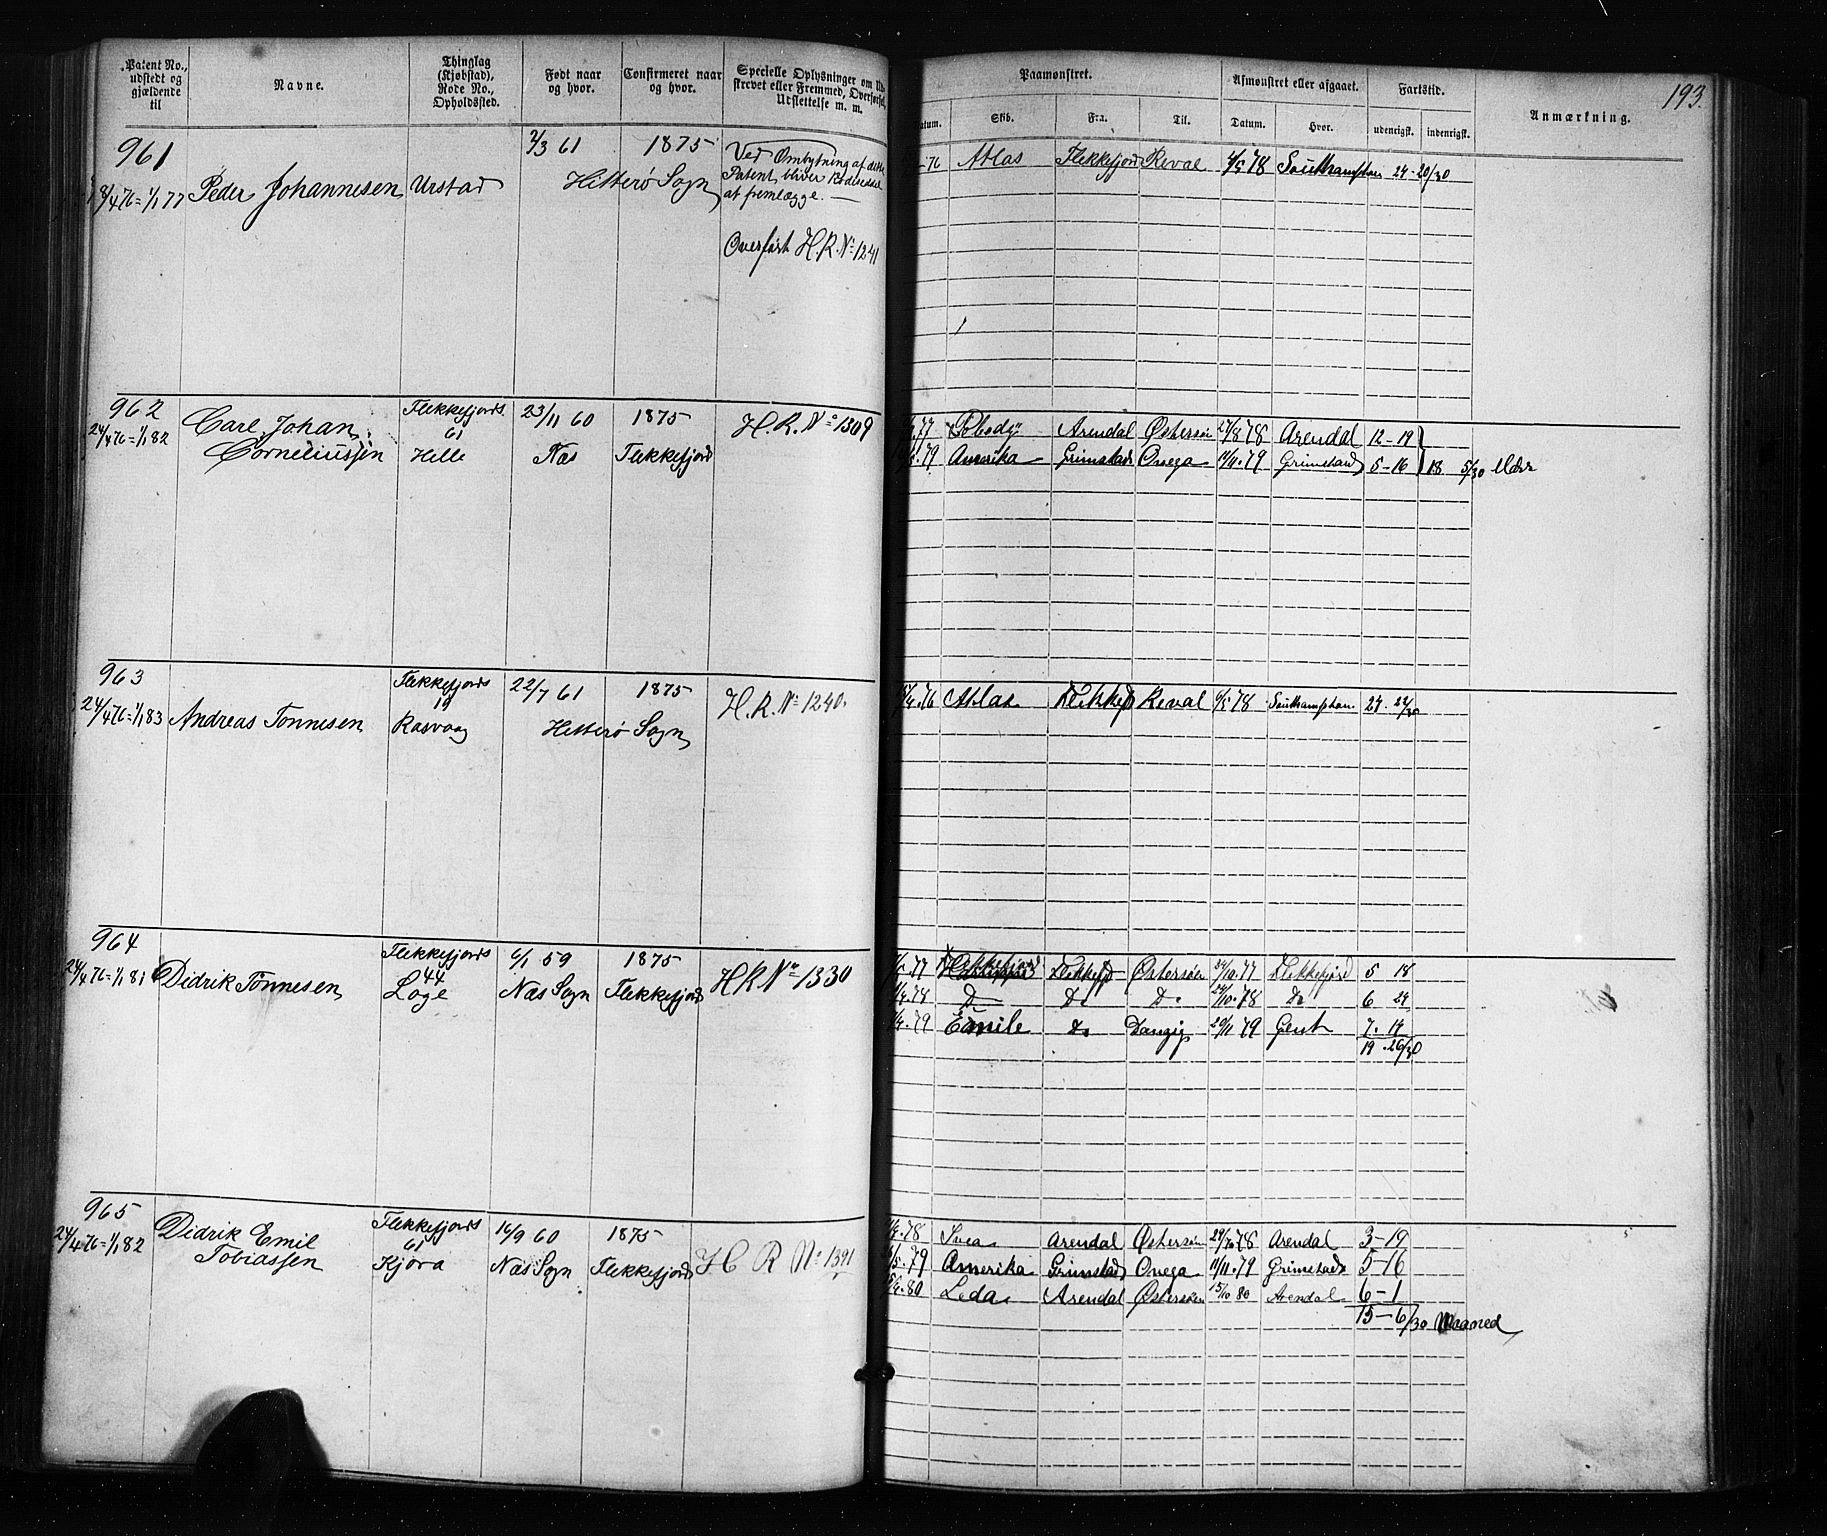 Patent No., udstedt og gjældende til
Navne.
Thinglag (Kjøbstad), Rode No., Opholdssted.
Født naar og hvor.
Confirmeret naar og hvor.
Specielle Oplysninger om Ud-
skrevet eller Fremmed, Overførsel,
Udslettelse m. m.
Paamønstret.
Afmønstret eller afgaaet.
Fartstid.
Anmærkning.
193.
Datum.
Skib.
Fra.
Til.
Datum.
Hvor.
udenrigsk.
indenrigsk.
961
18/4 76 = 1/1 77
Peder Johannesen
Urstad
2/3 61
1875
Hitterø Sogn
Ved Ombytning af dette
Patent, bliver
at fremlægge.
Overført H.R. No 1241
76 Atlas Flekkefjord Reval 4/5 78 Southampton 24 - 20/30
962
24/4 76 = 1/1 82
Carl Johan
Corneliussen
Flekkefjords
61
Helle
23/11 60
Næs
1875
Flekkefjord
H. R. No 1309
77 Arendal Østersøn 27/8 78 Arendal 12 - 19
79 Amerika Grimstad Onega 11/11. 79 Grimstad 5 - 16 18 5/30 Mdr
963
24/4 76 = 1/1 83
Andreas Tønnesen
Flekkefjords
19
Rasvaag
22/7 61
1875
Hitterø Sogn
H. R. No 1240.
18/4. 76 Atlas Flekkefj Reval 6/5 78 Southampton 24. 22/30
964
24/4 76 = 1/1 81
Didrik Tønnesen
Flekkefjords
44
Løge
6/1 59
Næs Sogn
1875
Flekkefjord
H R No 1330
77 Flekkefjord Flekkefjd Østersøen 24/10. 77 Flekkefjord 5 18
78 Do Do Do 24/10. 78 Do 6 24
79 Emile Do Danzig 20/11 79 Gent 7. 14
19. 26/30
965
24/4 76 = 1/1 82
Didrik Emil
Tobiassen
Flekkefjords
61
Kjøra
16/9 60
Næs Sogn
1875
Flekkefjord
H R No 1391
78 Svea Arendal Østersøn 29/10 78 Arendal 3 - 19
79 Amerika Grimstad Onega 11/11. 79 Grimstad 5 - 16
80 Leda Arendal Østersøen 15/10 80 Arendal 6 - 1
15 - 6/30 Maaned